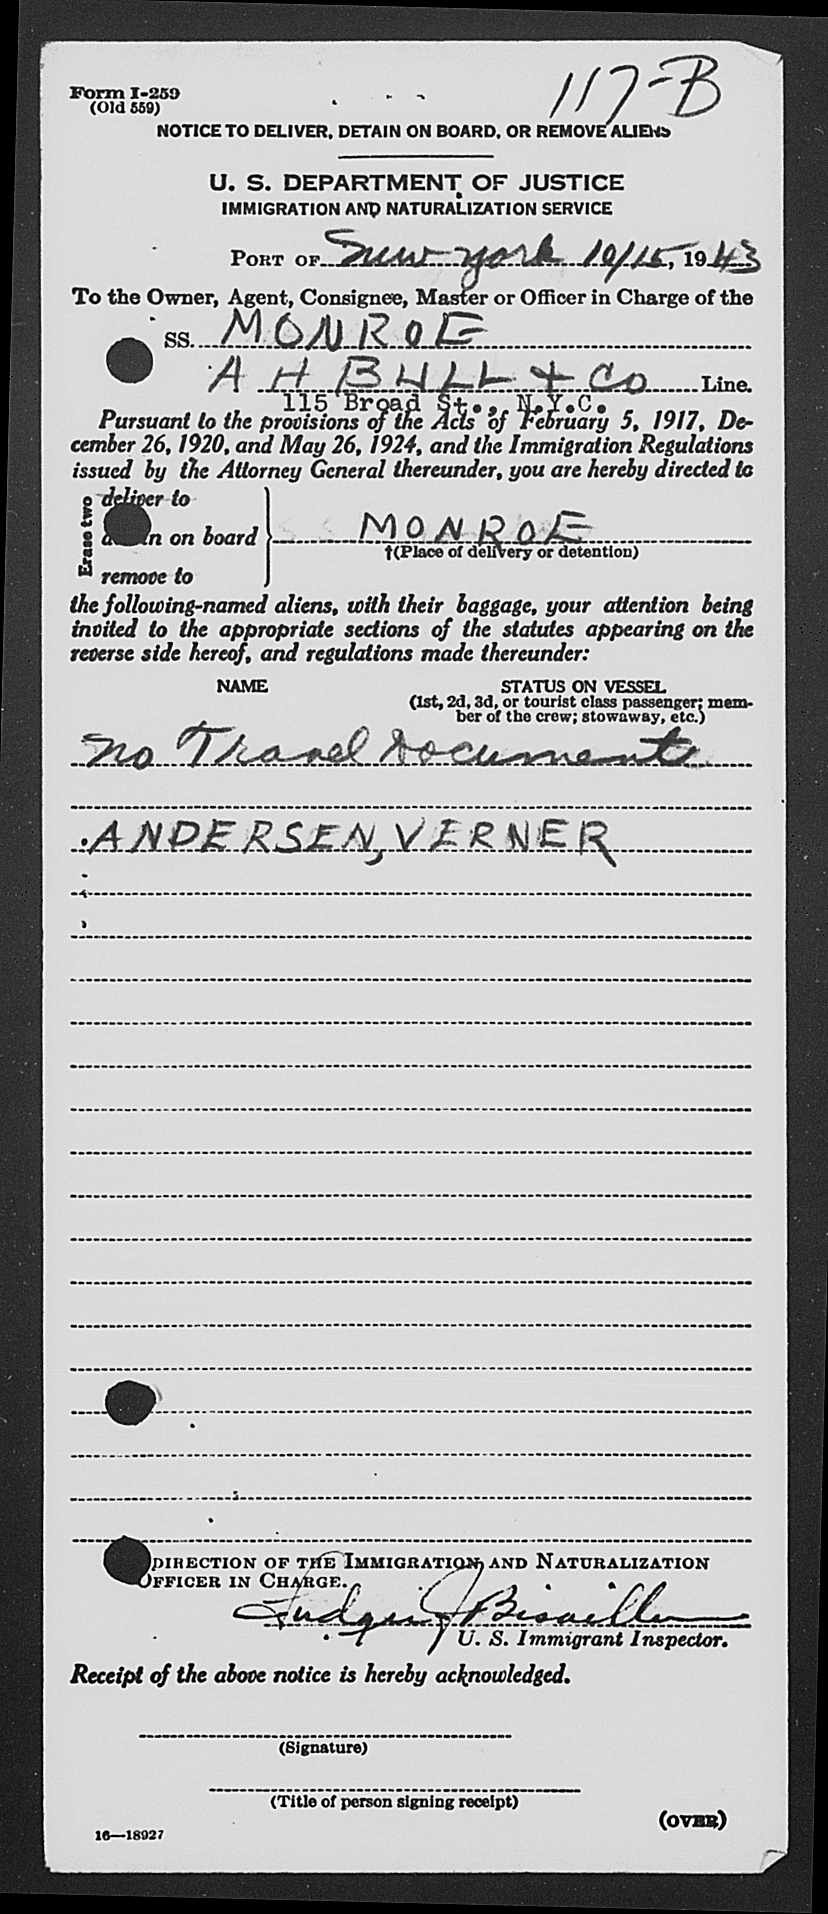 Form I-259
(Old 559)
117-B
NOTICE TO DELIVER, DETAIN ON BOARD, OR REMOVE ALIENS
U. S. DEPARTMENT OF JUSTICE
IMMIGRATION AND NATURALIZATION SERVICE
PORT OF New York 10/15, 1943
To the Owner, Agent, Consignee, Master or Officer in Charge of the
SS. MONROE
A H BULL + CO Line.
115 Broad St., N.Y.C.
Pursuant to the provisions of the Acts of February 5, 1917, De-
cember 26, 1920, and May 26, 1924, and the Immigration Regulations
issued by the Attorney General thereunder, you are hereby directed to
Erase two
deliver to
n on board MONROE
†(Place of delivery or detention)
remove to
the following-named aliens, with their baggage, your attention being
invited to the appropriate sections of the statutes appearing on the
reverse side hereof, and regulations made thereunder:
NAME STATUS ON VESSEL
(1st, 2d, 3d, or tourist class passenger; mem-
ber of the crew; stowaway, etc.)
No Travel Documents
ANDERSEN, VERNER
DIRECTION OF THE IMMIGRATION AND NATURALIZATION
OFFICER IN CHARGE.
U. S. Immigrant Inspector.
Receipt of the above notice is hereby acknowledged.
(Signature)
(Title of person signing receipt)
(OVER)
16—18927